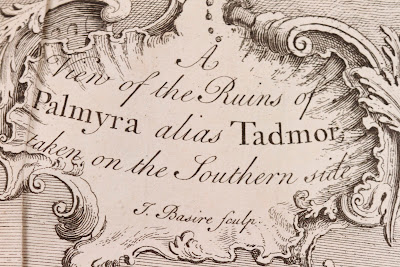 A
View of the Ruins of
Palmyra alias Tadmor,
taken on the Southern side
J. Basire sculp.